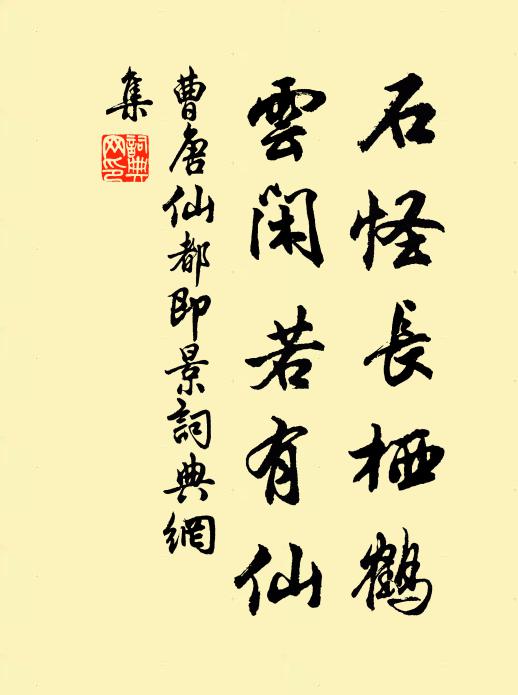 石怪長栖鶴
雲閑若有仙
曹唐仙都即景詞典網
集
詞典
网印